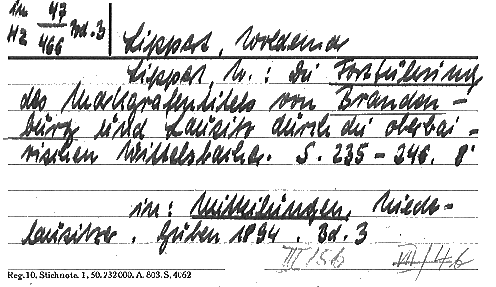 in 47
HZ 466 Bd. 3
Lippert, Woldemar
Lippert, W.: Die Fortführung
des Markgrafentitels von Branden-
burg und Lausitz durch die oberbai-
rischen Wittelsbacher. S. 235-246. 8°
in: Mitteilungen, Niede-
lausitzer. Guben 1894. Bd. 3
III/56 VII/46
Reg. 10. Stichnote. 1, 50. 232 000. A. 803. S. 4062